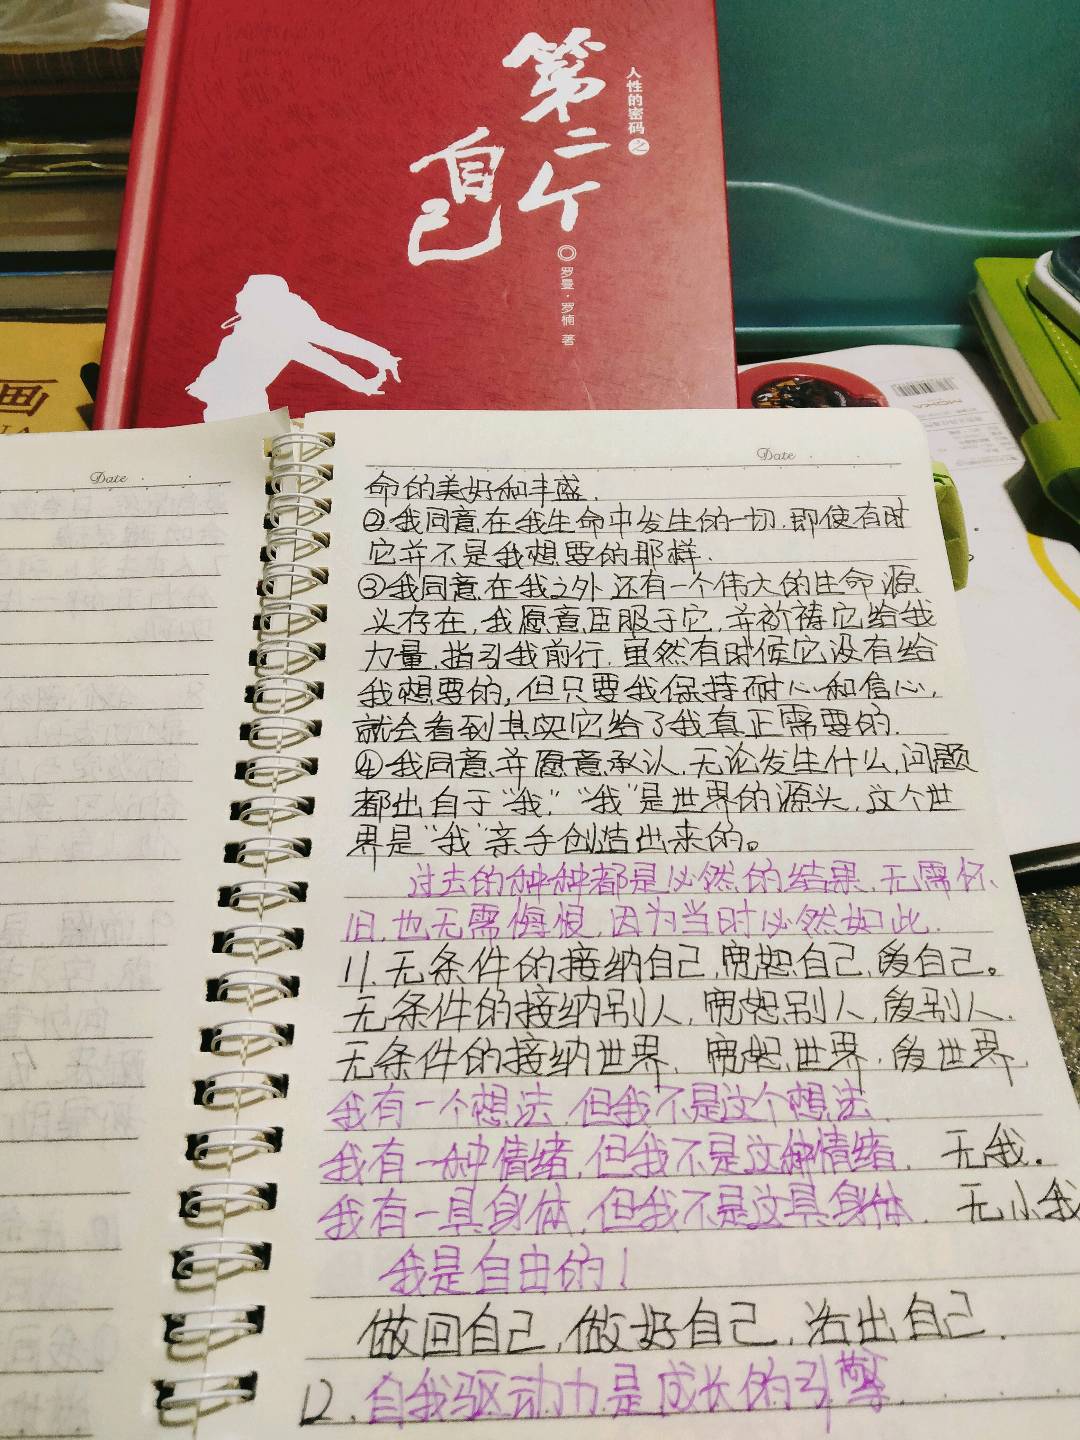 人性的密码之
第二个
自己
罗曼·罗楠 著
画
MOKA
Date
Date
命的美好和丰盛.
②我同意在我生命中发生的一切,即使有时
它并不是我想要的那样.
③我同意在我之外还有一个伟大的生命源
头存在,我愿意臣服于它,并祈祷它给我
力量,指引我前行.虽然有时候它没有给
我想要的,但只要我保持耐心和信心,
就会看到其实它给了我真正需要的.
④我同意并愿意承认,无论发生什么,问题
都出自于“我”,“我”是世界的源头,这个世
界是“我”亲手创造出来的。
过去的种种都是必然的结果,无需怀
旧,也无需悔恨,因为当时必然如此.
11.无条件的接纳自己,宽恕自己,爱自己。
无条件的接纳别人,宽恕别人,爱别人.
无条件的接纳世界,宽恕世界,爱世界.
我有一个想法,但我不是这个想法.
我有一种情绪,但我不是这种情绪. 无我.
我有一具身体,但我不是这具身体. 无小我
我是自由的!
做回自己,做好自己,活出自己.
12.自我驱动力是成长的引擎.